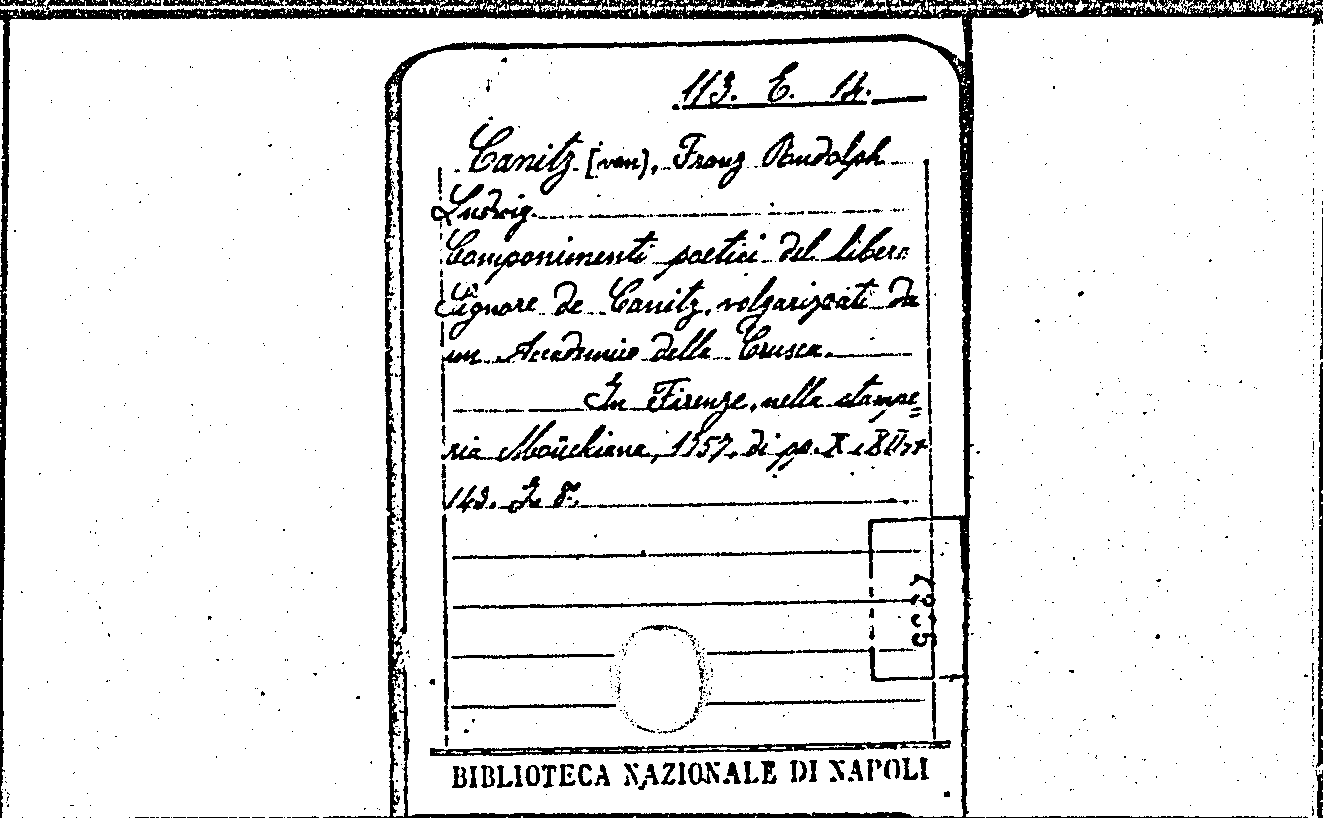 113. E. 14.
Canitz [von], Franz Rudolph
Ludwig.
Componimenti poetici del libero
Signore de Canitz, volgarizzati da
un Accademico della Crusca.
In Firenze, nella stampe=
ria Moückiana, 1757. di pp. X
143. In 8°.
BIBLIOTECA NAZIONALE DI NAPOLI